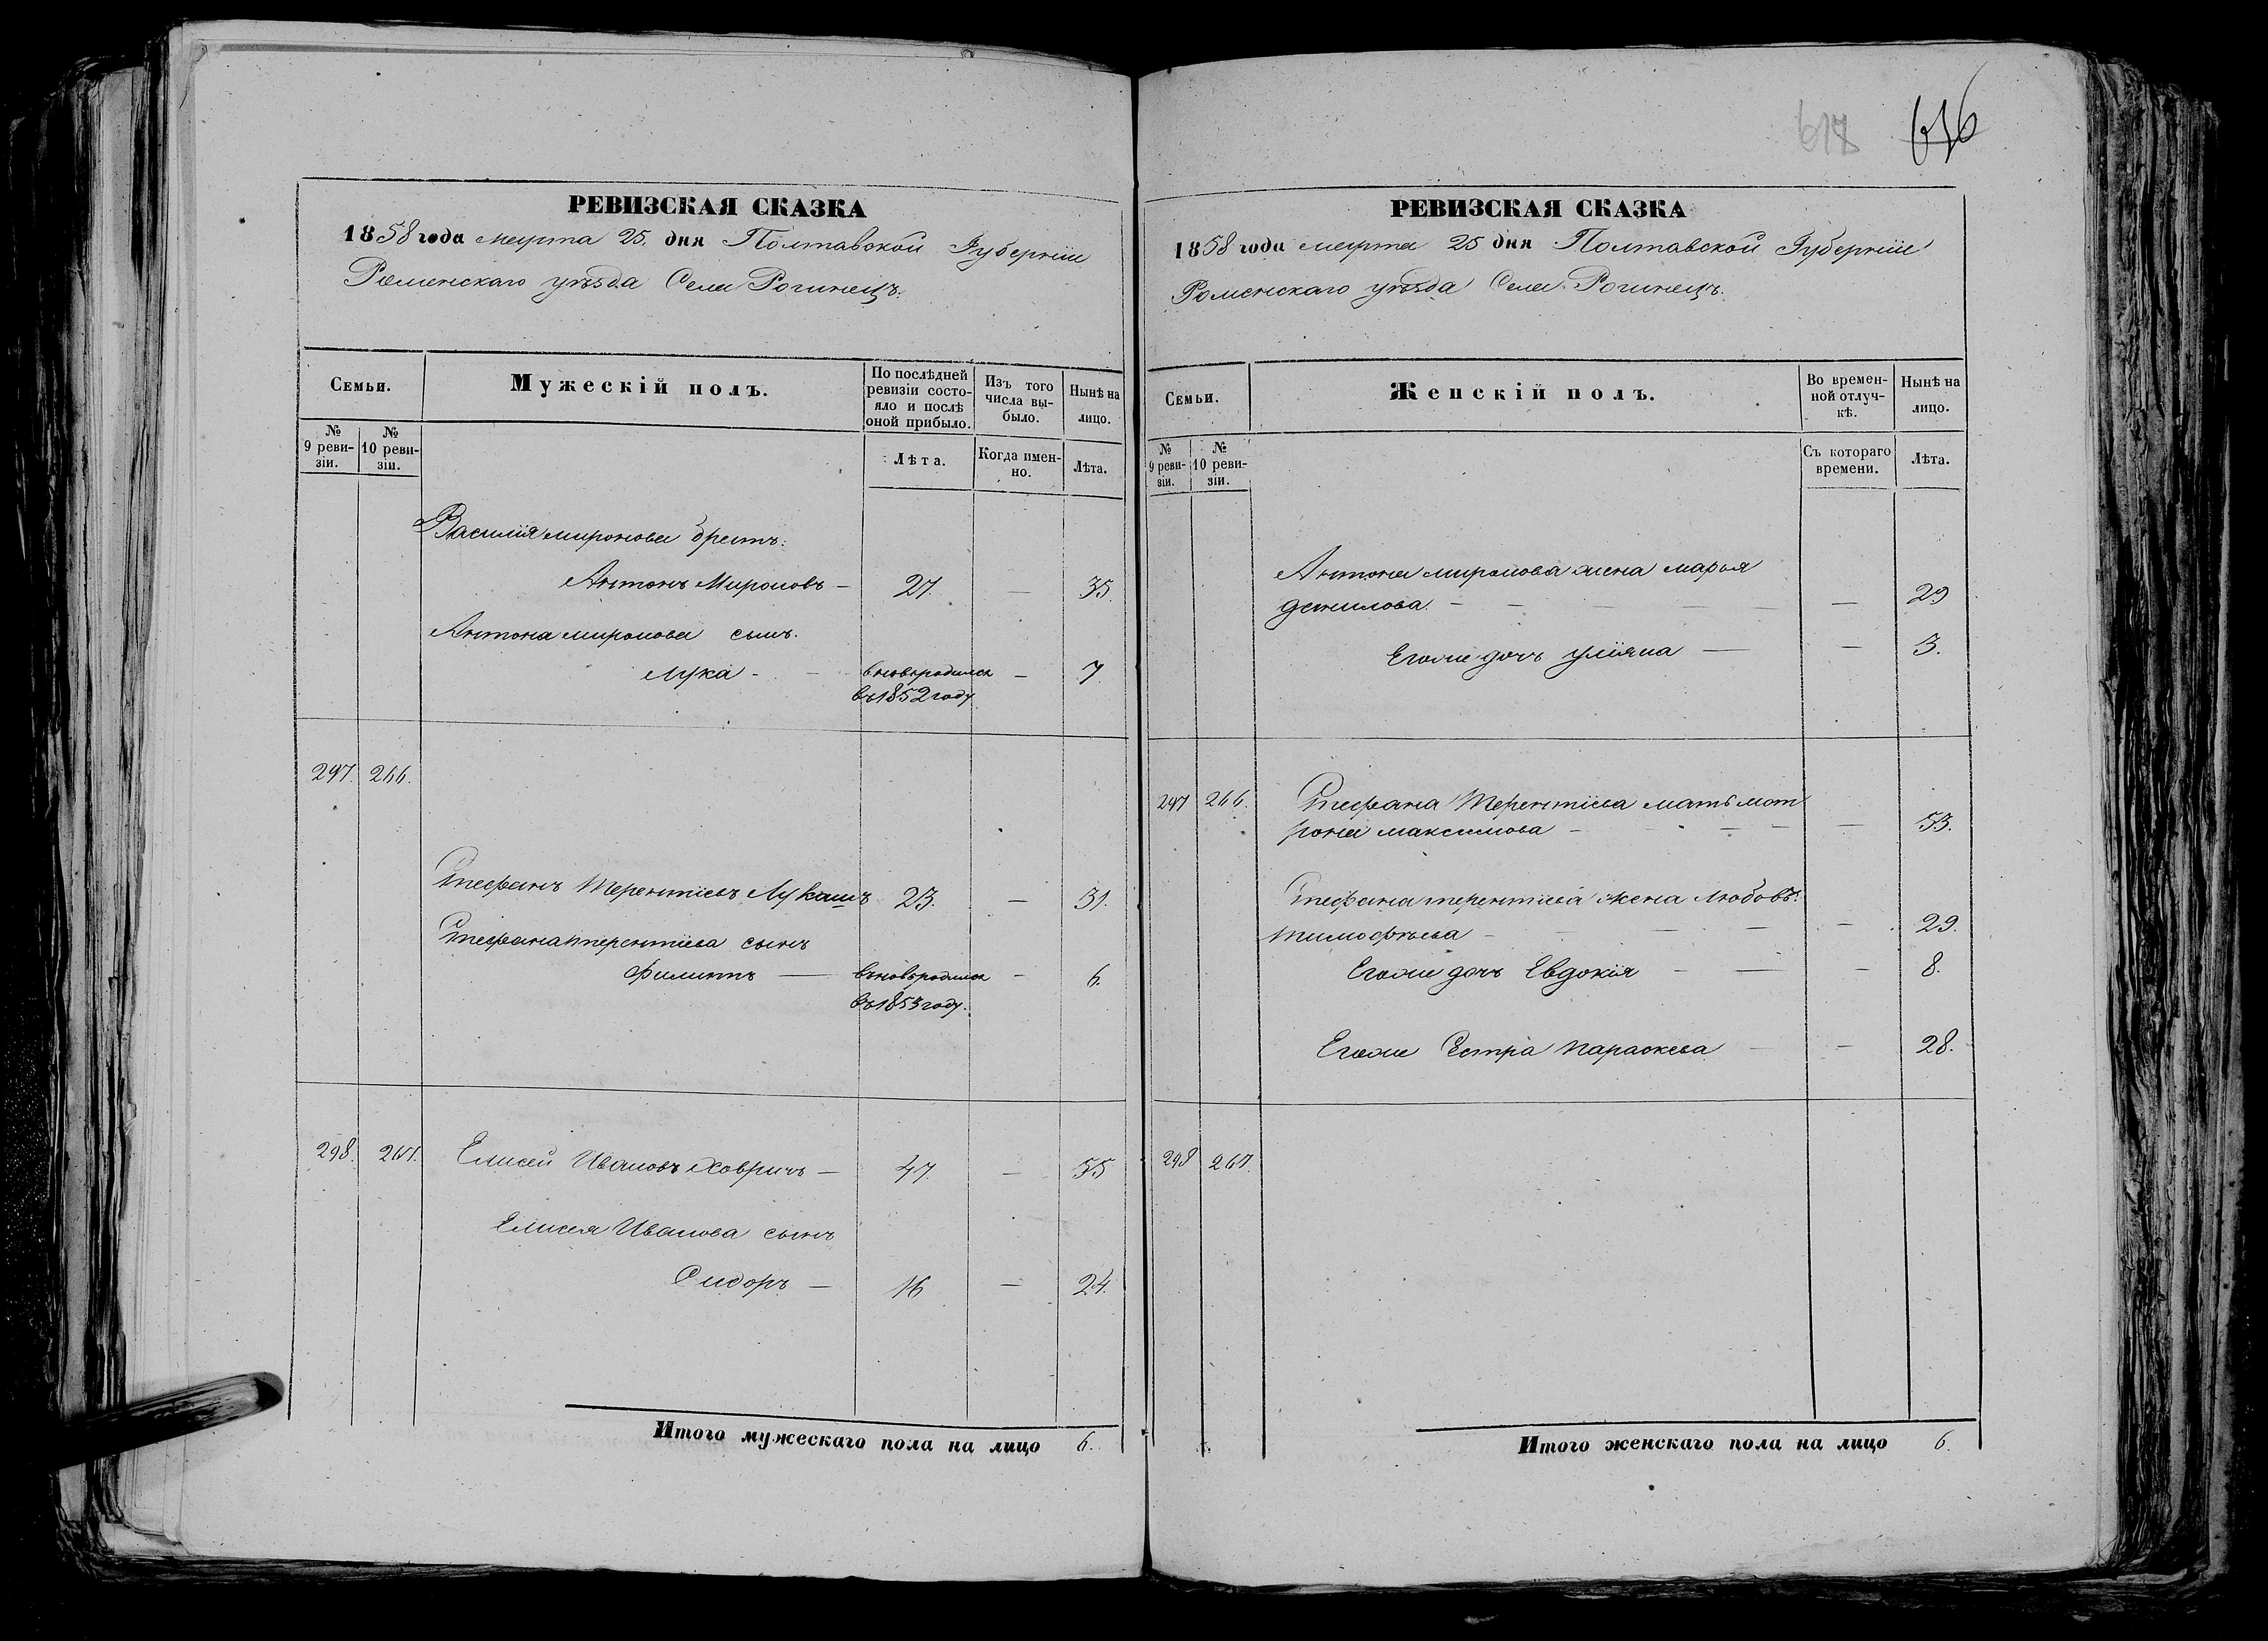 РЕВИЗСКАЯ СКАЗКА
1858 года марта 25. дня Полтавской Губерніи
Роменскаго уѣзда Села Рогинецъ.
Семьи.
Мужескій полъ.
По послѣдней ревизіи состояло и послѣ оной прибыло.
Изъ того числа выбыло.
Нынѣ на лицо.
№ 9 ревизіи.
№ 10 ревизіи.
Лѣта.
Когда именно.
Лѣта.
Василія миронова братъ:
Антонъ Мироновъ — 27. — 35.
Антона миронова сынъ.
Лука - - вновьродился — 7
въ 1852 году
297. 266.
Стефанъ Терентіевъ Лукашъ 23. — 31.
Стефана терентіева сынъ
Филиппъ — вновьродился — 6.
въ 1853 году.
298. 267. Елисей Ивановъ Ховричъ — 47. — 55
Елисея Иванова сынъ
Сидоръ — 16 — 24.
Итого мужескаго пола на лицо 6.
617 616
РЕВИЗСКАЯ СКАЗКА
1858 года марта 25 дня Полтавской Губерніи
Роменскаго уѣзда Села Рогинецъ.
Семьи.
Женскій полъ.
Во временной отлучкѣ.
Нынѣ на лицо.
№ 9 ревизіи.
№ 10 ревизіи.
Съ котораго времени.
Лѣта.
Антона миронова жена марья
данилова. — — — — — 29
Егоже дочь уліяна — — 3.
297 266. Стефана Терентіева мать мот
рона максимова — — — — 53.
Стефана терентіева жена Любовъ:
тимофѣева — — — — — 29.
Егоже дочь Евдокія — — — 8.
Егоже Сестра параскева — — 28.
298 267.
Итого женскаго пола на лицо 6.